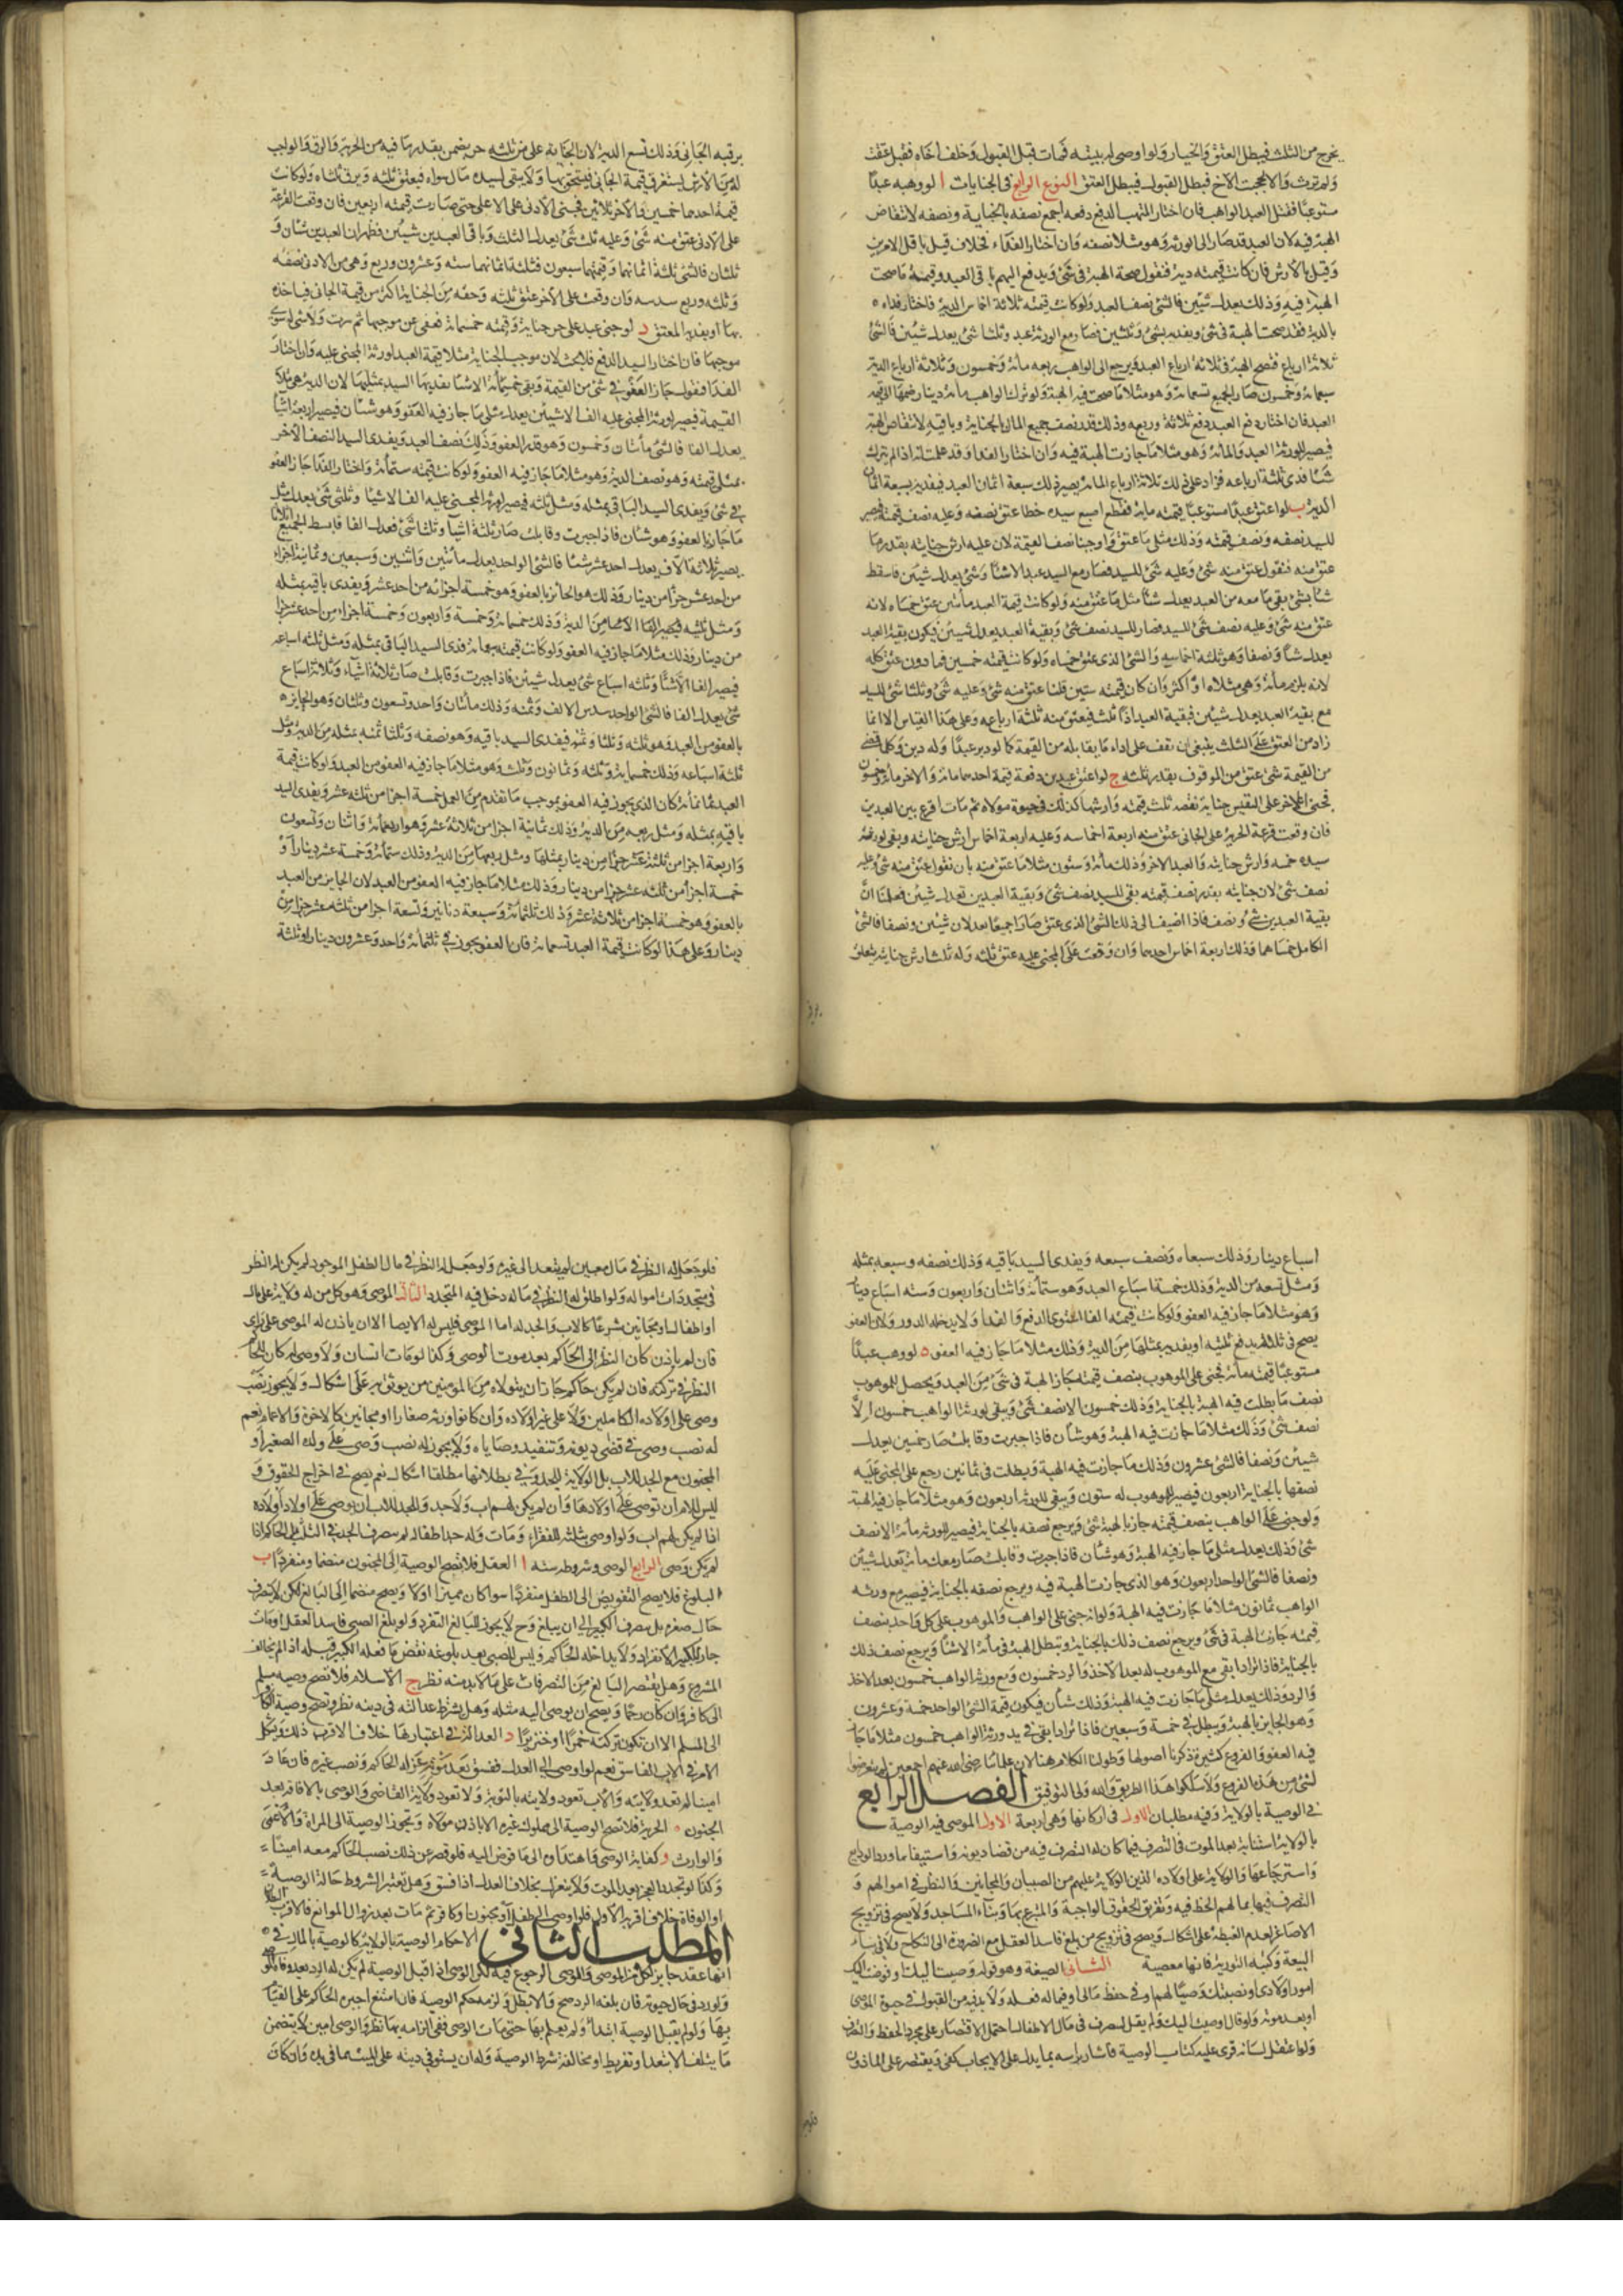 يخرج من الثلث فيبطل العتق والخيار ولو اوصى له ببيته فمات قبل القبول وخلف اخاه فقبل عتقت
ولم ترث والا لحجبت الاخ فبطل القبول فيبطل العتق النوع الرابع في الجنايات ا لو وهبه عبدا
مستوعبا فقتل العبد الواهب فان اختار المتهب الدفع دفعه اجمع نصفه بالجناية ونصفه لانتقاض
الهبة فيه لان العبد قد صار الى الورثة وهو مثلا نصفه وان اختار الفداء فخلاف قيل باقل الامرين
وقيل بالارش فان كانت قيمته دية فنقول صحة الهبة في شئ ويدفع اليهم باقي العبد وقيمة ما صحت
الهبة فيه وذلك يعدل شيئين فالشئ نصف العبد ولو كانت قيمته ثلاثة اخماس الدية فاختار فداءه
بالدية فقد صحت الهبة في شئ ويفديه بشئ وثلثين فصار مع الورثة عبد وثلثا شئ يعدل شيئين فالشئ
ثلاثة ارباع فتصح الهبة في ثلاثة ارباع العبد فيرجع الى الواهب ربعه مائة وخمسون وثلاثة ارباع الدية
سبعمائة وخمسون صار الجميع تسعمائة وهو مثلا ما صحت فيه الهبة ولو ترك الواهب مائة دينار ضمها الى قيمة
العبد فان اختار دفع العبد دفع ثلاثة وربعه وذلك قدر نصف جميع المال بالجناية وباقيه لانتقاض الهبة
فيصير للورثة العبد والمائة وهو مثلا ما جازت الهبة فيه وان اختار الفداء وقد علمت انه اذا لم يترك
شئا فدى ثلثة ارباعه فزاد على ذلك ثلاثة ارباع المائة يصير ذلك سبعة اثمان العبد فيفديه بسبعة اثمان
الدية ب لو اعتق عبدا مستوعبا قيمته مائة فقطع اصبع سيده خطا عتق نصفه وعليه نصف قيمته فيصير
للسيد نصفه ونصف قيمته وذلك مثلي ما عتق واوجبنا نصف القيمة لان عليه ارش جنايته بقدر ما
عتق منه فنقول عتق منه شئ وعليه شئ للسيد فصار مع السيد عبد الا شئا وشئ يعدل شيئين فاسقط
شئا بشئ بقى ما معه من العبد يعدل شئا مثل ما عتق منه ولو كانت قيمة العبد مأتين عتق خمساه لانه
عتق منه شئ وعليه نصف شئ للسيد فصار للسيد نصف شئ وبقية العبد يعدل شيئين فيكون بقية العبد
يعدل شئا ونصفا وهو ثلثة اخماسه والشئ الذي عتق خمساه ولو كانت قيمته خمسين فما دون عتق كله
لانه يلزمه مائة وهي مثلاه او اكثر وان كان قيمته ستين قلنا عتق منه شئ وعليه شئ وثلثا شئ للسيد
مع بقية العبد يعدل شيئين فبقية العبد اذا ثلث فيعتق منه ثلثة ارباعه وعلى هذا القياس الا ان ما
زاد من العتق على الثلث ينبغي ان نقف على اداء ما يقابله من القيمة كما لو دبر عبدا وله دين وكلما اقتضى
من القيمة شئ عتق من الموقوف بقدر ثلثه ج لو اعتق عبدين دفعة قيمة احدهما مائة والاخر مائة وخمسون
فجنى الاخر على النفيس جناية نقصه ثلث قيمته وارشها كذلك في حيوة مولاه ثم مات اقرع بين العبدين
فان وقعت قرعة الحرية على الجاني عتق منه اربعة اخماسه وعليه اربعة اخماس ارش جنايته وبقى لورثة
سيده خمسه وارش جنايته والعبد الاخر وذلك مائة وستون مثلا ما عتق منه بان نقول عتق منه شئ وعليه
نصف شئ لان جنايته بقدر نصف قيمته بقى للسيد نصف شئ وبقية العبدين تعدل شيئين فعلمنا ان
بقية العبدين شئ ونصف فاذا اضيفا الى ذلك الشئ الذي عتق صارا جميعا يعدلان شيئين ونصفا فالشئ
الكامل خمساهما وذلك اربعة اخماس احدهما وان وقعت على المجني عليه عتق ثلثه وله ثلث ارش جنايته يتعلق
برقبة الجاني وذلك تسع الدية لان الجناية على من ثلثه حر يضمن بقدر ما فيه من الحرية والرق والواجب
له من الارش يستغرق قيمة الجاني فيستحقه بها ولا يبقى لسيده مال سواه فيعتق ثلثه ويرق ثلثاه ولو كانت
قيمة احدهما خمسين والاخر ثلاثين فجنى الادنى على الاعلى حتى صارت قيمته اربعين فان وقعت القرعة
على الادنى عتق منه شئ وعليه ثلث شئ يعدل الثلث وباقي العبدين شيئين فظهر ان العبدين شئان و
ثلثان فالشئ ثلثة اثمانهما وقيمتهما سبعون فثلثة اثمانهما ستة وعشرون وربع وهي من الادنى نصفه
وثلثه وربع سدسه وان وقعت على الاخر عتق ثلثه وحقه من الجناية اكثر من قيمة الجاني فياخذه
بها او يفديه المعتق د لو جنى عبد على حر جناية وقيمته خمسمائة فعفى عن موجبها ثم سرت ولا شئ له سوى
موجبها فان اختار السيد الدفع فلا بحث لان موجب الجناية مثلا قيمة العبد لورثة المجني عليه وان اختار
الفدا فنقول جاز العفو في شئ من القيمة وبقي خمسمائة الا شئا يفديها السيد بمثليها لان الدية هي مثلا
القيمة فيصير لورثة المجني عليه الف الا شيئين يعدل مثلي ما جاز فيه العفو وهو شئان فيصير اربعة اشيا
يعدل الفا فالشئ مأتان وخمسون وهو قدر العفو وذلك نصف العبد ويفدي السيد النصف الاخر
بمثلي قيمته وهو نصف الدية وهو مثلا ما جاز فيه العفو ولو كانت قيمته ستمائة واختار الفدا جاز العفو
في شئ ويفدي السيد الباقي بمثله ومثل ثلثه فيصير لورثة المجني عليه الف الا شيئا وثلثي شئ يعدل مثلي
ما جاز به العفو وهو شئان فاذا جبرت وقابلت صار ثلثة اشيا وثلثا شئ يعدل الفا فابسط الجميع اثلاثا
يصير ثلاثة الاف يعدل احد عشر شئا فالشئ الواحد يعدل مأتين واثنين وسبعين وثمانية اجزاء
من احد عشر جزأ من دينار وذلك هو الجائز بالعفو وهو خمسة اجزائه من احد عشر ويفدي باقيه بمثله
ومثل ثلثيه
من دينار وذلك مثلا ما جاز فيه العفو ولو كانت قيمته سبعمائة فدى السيد الباقي بمثله ومثل ثلثة اسباعه
فيصير الفا الا شئا وثلثة اسباع شئ يعدل شيئين فاذا جبرت وقابلت صار ثلاثة اشياء وثلاثة اسباع
شئ يعدل الفا فالشئ الواحد سدس الالف وثمنه وذلك مأتان واحد وتسعون وثلثان وهو الجايزه
بالعفو من العبد وهو ثلثه وثلثا وثمنه فيفدي السيد باقيه وهو نصفه وثلثا ثمنه بمثله من الدية ومثل
ثلثة اسباعه وذلك خمسمائة وثلثه وثمانون وثلث وهو مثلا ما جاز فيه العفو من العبد ولو كانت قيمة
العبد ثمانمائة كان الذي يجوز فيه العفو بموجب ما تقدم من العمل خمسة اجزا من ثلثه عشر ويفدي السيد
باقيه بمثله ومثل ربعه من الدية وذلك ثمانية اجزا من ثلاثة عشر وهو اربعمائة واثنان وتسعون
واربعة اجزا من ثلثة عشر جزأ من دينار بمثلها ومثل ربعها من الدية وذلك ستمائة وخمسة عشر دينارا و
خمسة اجزأ من ثلثه عشر جزأ من دينار وذلك مثلا ما جاز فيه العفو من العبد لان الجايز من العبد
بالعفو وهو خمسة اجزا من ثلاثة عشر وذلك ثلثمائة وسبعة دنانير وتسعة اجزا من ثلثه عشر جزأ من
دينار وعلى هذا لو كانت قيمة العبد تسعمائة فان العفو يجوز في ثلثمائة واحد وعشرون دينار وثلثة
اسباع دينار وذلك سبعاه ونصف سبعه ويفدي السيد باقيه وذلك نصفه وسبعه بمثله
ومثل تسعه من الدية وذلك خمسة اسباع العبد وهو ستمائة واثنان واربعون وسته اسباع دينار
وهو مثلا ما جاز فيه العفو ولو كانت قيمته الفا استوى الدفع والفدا ولا يدخله الدور ولان العفو
يصح في ثلثه فيدفع ثلثيه او يفديه بمثلها من الدية وذلك مثلا ما جاز فيه العفو ه لو وهب عبدا
مستوعبا قيمته مائة فجنى على الموهوب بنصف قيمته جاز الهبة في شئ من العبد ويحصل للموهوب
نصف ما بطلت فيه الهبة بالجناية وذلك خمسون الا نصف شئ ويبقى لورثة الواهب خمسون الا
نصف شئ وذلك مثلا ما جازت فيه الهبة وهو شئان فاذا جبرت وقابلت صار خمسين يعدل
شيئين ونصفا فالشئ عشرون وذلك ما جازت فيه الهبة وبطلت في ثمانين رجع على المجني عليه
نصفها بالجناية اربعون فيصير للموهوب له ستون ويبقى للورثة اربعون وهو مثلا ما جاز فيه الهبة
ولو جنى على الواهب بنصف قيمته جاز بالهبة شئ ويرجع نصفه بالجناية فيصير للورثة مائة الا نصف
شئ وذلك يعدل مثلي ما جاز فيه الهبة وهو شئان فاذا جبرت وقابلت صار معك مائة تعدل شيئين
ونصفا فالشئ الواحد اربعون وهو الذي جازت الهبة فيه ويرجع نصفه بالجناية فيصير مع ورثة
الواهب ثمانون مثلا ما جازت فيه الهبة ولو انه جنى على الواهب والموهوب على كل واحد بنصف
قيمته جازت الهبة في شئ ويرجع نصف ذلك بالجناية وتبطل الهبة في مائة الا شئا ويرجع نصف ذلك
بالجناية فاذا ترادا بقى مع الموهوب له بعد الاخذ والرد خمسون ومع ورثة الواهب خمسون بعد الاخذ
والرد وذلك يعدل مثلي ما جازت فيه الهبة وذلك شئان فيكون قيمة الشئ الواحد خمسة وعشرون
وهو الجايز بالهبة ويبطل في خمسة وسبعين فاذا ترادا بقى في يد ورثة الواهب خمسون مثلا ما جاز
فيه العفو والفروع كثيرة ذكرنا اصولها وطولنا الكلام هنا لان علمائنا رضى الله عنهم اجمعين لم يتعرضوا
لشئ من هذه الفروع ولا سلكوا هذا الطريق والله ولى التوفيق الفصل الرابع
في الوصية بالولاية وفيه مطلبان الاول في اركانها وهي اربعة الاول الموصى فيه الوصية
بالولاية استنابة بعد الموت في التصرف فيما كان له التصرف فيه من قضا ديونه واستيفائها ورد الودايع
واسترجاعها والولاية على اولاده الذين له الولاية عليهم من الصبيان والمجانين والنظر في اموالهم و
التصرف فيها بما لهم الحظ فيه وتفريق الحقوق الواجبة والمتبرع بها وبناء المساجد ولا يصح في تزويج
الاصاغر لعدم الغبطة على اشكال ويصح في تزويج من بلغ فاسد العقل مع الضرورة الى النكاح ولا في بناء
البيعة وكتبه التورية فانها معصية الثاني الصيغة وهو قوله وصيت اليك او فوضت اليك
امور اولادي او نصبتك وصيا لهم او في حفظ مالي او فيما له فعله ولا بد فيه من القبول في حيوة الموصى
او بعد موته ولو قال اوصيت اليك ولم يقل لتصرف في مال الاطفال احتمل الاقتصار على مجرد الحفظ والتصرف
ولو اعتقل لسانه قرى عليه كتاب الوصية فاشار براسه بما يدل على الايجاب كفى ويقتصر على الماذون
فلو جعل له النظر في مال معين لم يتعد الى غيره ولو جعل له النظر في مال الطفل الموجود لم يكن له النظر
في متجددات امواله ولو اطلق له النظر في ماله دخل فيه المتجدد الثالث الموصى وهو كل من له ولاية على مال
او اطفال او مجانين شرعا كالاب والجد له اما الموصى فليس له الايصا الا ان ياذن له الموصى على راى
فان لم ياذن كان النظر الى الحاكم بعد موت الوصى وكذا لو مات انسان ولا وصى له كان للحاكم
النظر في تركته فان لم يكن حاكم جاز ان يتولاه من المؤمنين من يوثق به على اشكال ولا يجوز نصب
وصى على اولاده الكاملين ولا على غير اولاده وان كانوا ورثه صغارا او مجانين كالاخوة والاعمام نعم
له نصب وصى في قضى ديونه وتنفيذ وصاياه ولا يجوز له نصب وصى على ولده الصغير او
المجنون مع الجد للاب بل الولاية للجد وفي بطلانها مطلقا اشكال نعم يصح في اخراج الحقوق و
ليس للام ان توصى على اولادها وان لم يكن لهم اب ولا جد وللجد للاب ان يوصى على اولاد اولاده
اذا لم يكن لهم اب ولو اوصى بثلثه للفقراء ومات وله جد اطفاله لم يصرف الجد في الثلث بل الحاكم اذا
لم يكن وصى الرابع الوصى وشروطه سته ا العقل فلا تصح الوصية الى المجنون منضما ومنفردا ب
البلوغ فلا يصح التفويض الى الطفل منفردا سوا كان مميزا اولا ويصح منضما الى البالغ لكن لا يتصرف
حال صغره بل يتصرف الكبير الى ان يبلغ وح لا يجوز للبالغ التفرد ولو بلغ الصبى فاسد العقل او مات
جاز للكبير الانفراد ولا يداخله الحاكم وليس للصبى بعد بلوغه نقض ما فعله الكبير قبله اذا لم يخالف
المشروع وهل يقتصر البالغ من التصرفات على ما لا بد منه نظر ج الاسلام فلا تصح وصية مسلم
الى كافر وان كان رحما ويصح ان يوصى اليه مثله وهل يشترط عدالته في دينه نظر وتصح وصية الكافر
الى المسلم الا ان تكون تركته خمرا او خنزيرا د العدالة وفي اعتبارها خلاف الاقرب ذلك ويشكل
الامر في الاب الفاسق نعم لو اوصى الى العدل ففسق بعد موته عزله الحاكم ونصب غيره فان عاد
امينا لم تعد ولايته والاب تعود ولايته بالتوبة ولا تعود ولاية القاضى والوصى بالافاقة بعد
الجنون ه الحرية فلا تصح الوصية الى مملوك غيره الا باذن مولاه وتجوز الوصية الى المراة والاعمى
والوارث و كفاية الوصى فاهتداؤه الى ما فوض اليه فلو قصر عن ذلك نصب الحاكم معه امينا
وكذا لو تجدد العجز بعد الموت ولا ينعزل بخلاف العدل اذا فسق وهل تعتبر الشروط حالة الوصية
او الوفاة خلاف اقربه الاول فلو اوصى الى طفل او مجنون او كافر ثم مات بعد زوال الموانع فالاقرب البطلان
المطلب الثاني الاحكام الوصية بالولاية كالوصية بالمال في
انها عقد جايز لكل من الموصى والوصى الرجوع فيه لكن الوصى اذا قبل الوصية لم يكن له الرد بعد وفاة الموصى
ولو رد في حال حيوته فان بلغه الرد صح والا بطل ولزمه حكم الوصية فان امتنع اجبره الحاكم على القيام
بها ولو لم يقبل الوصية ابتداء ولم يعلم بها حتى مات الوصى ففي الزامه بها نظر والوصى امين لا يتضمن
ما يتلف الا بتعد او تفريط او مخالفة شرط الوصية وله ان يستوفى دينه على الميت مما في يده وان كان